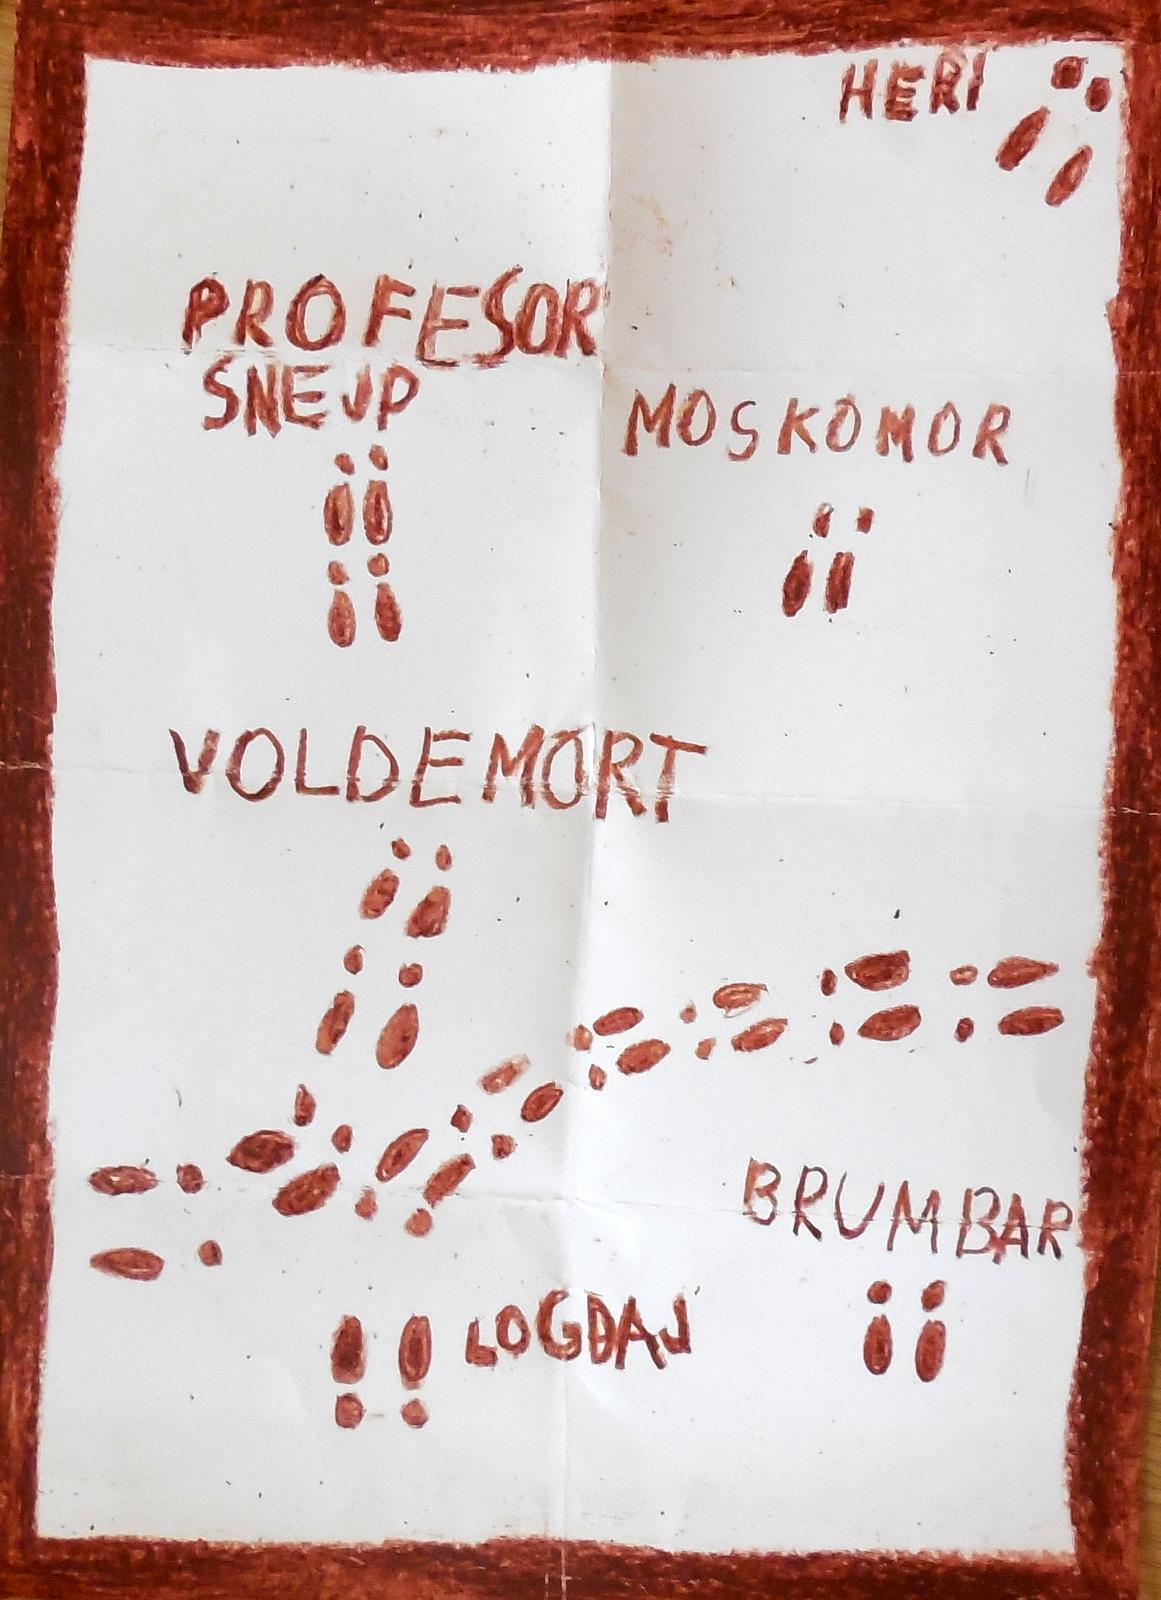 HERI
PROFESOR
SNEJP
MOSKOMOR
VOLDEMORT
BRUMBAR
LOGDAJ